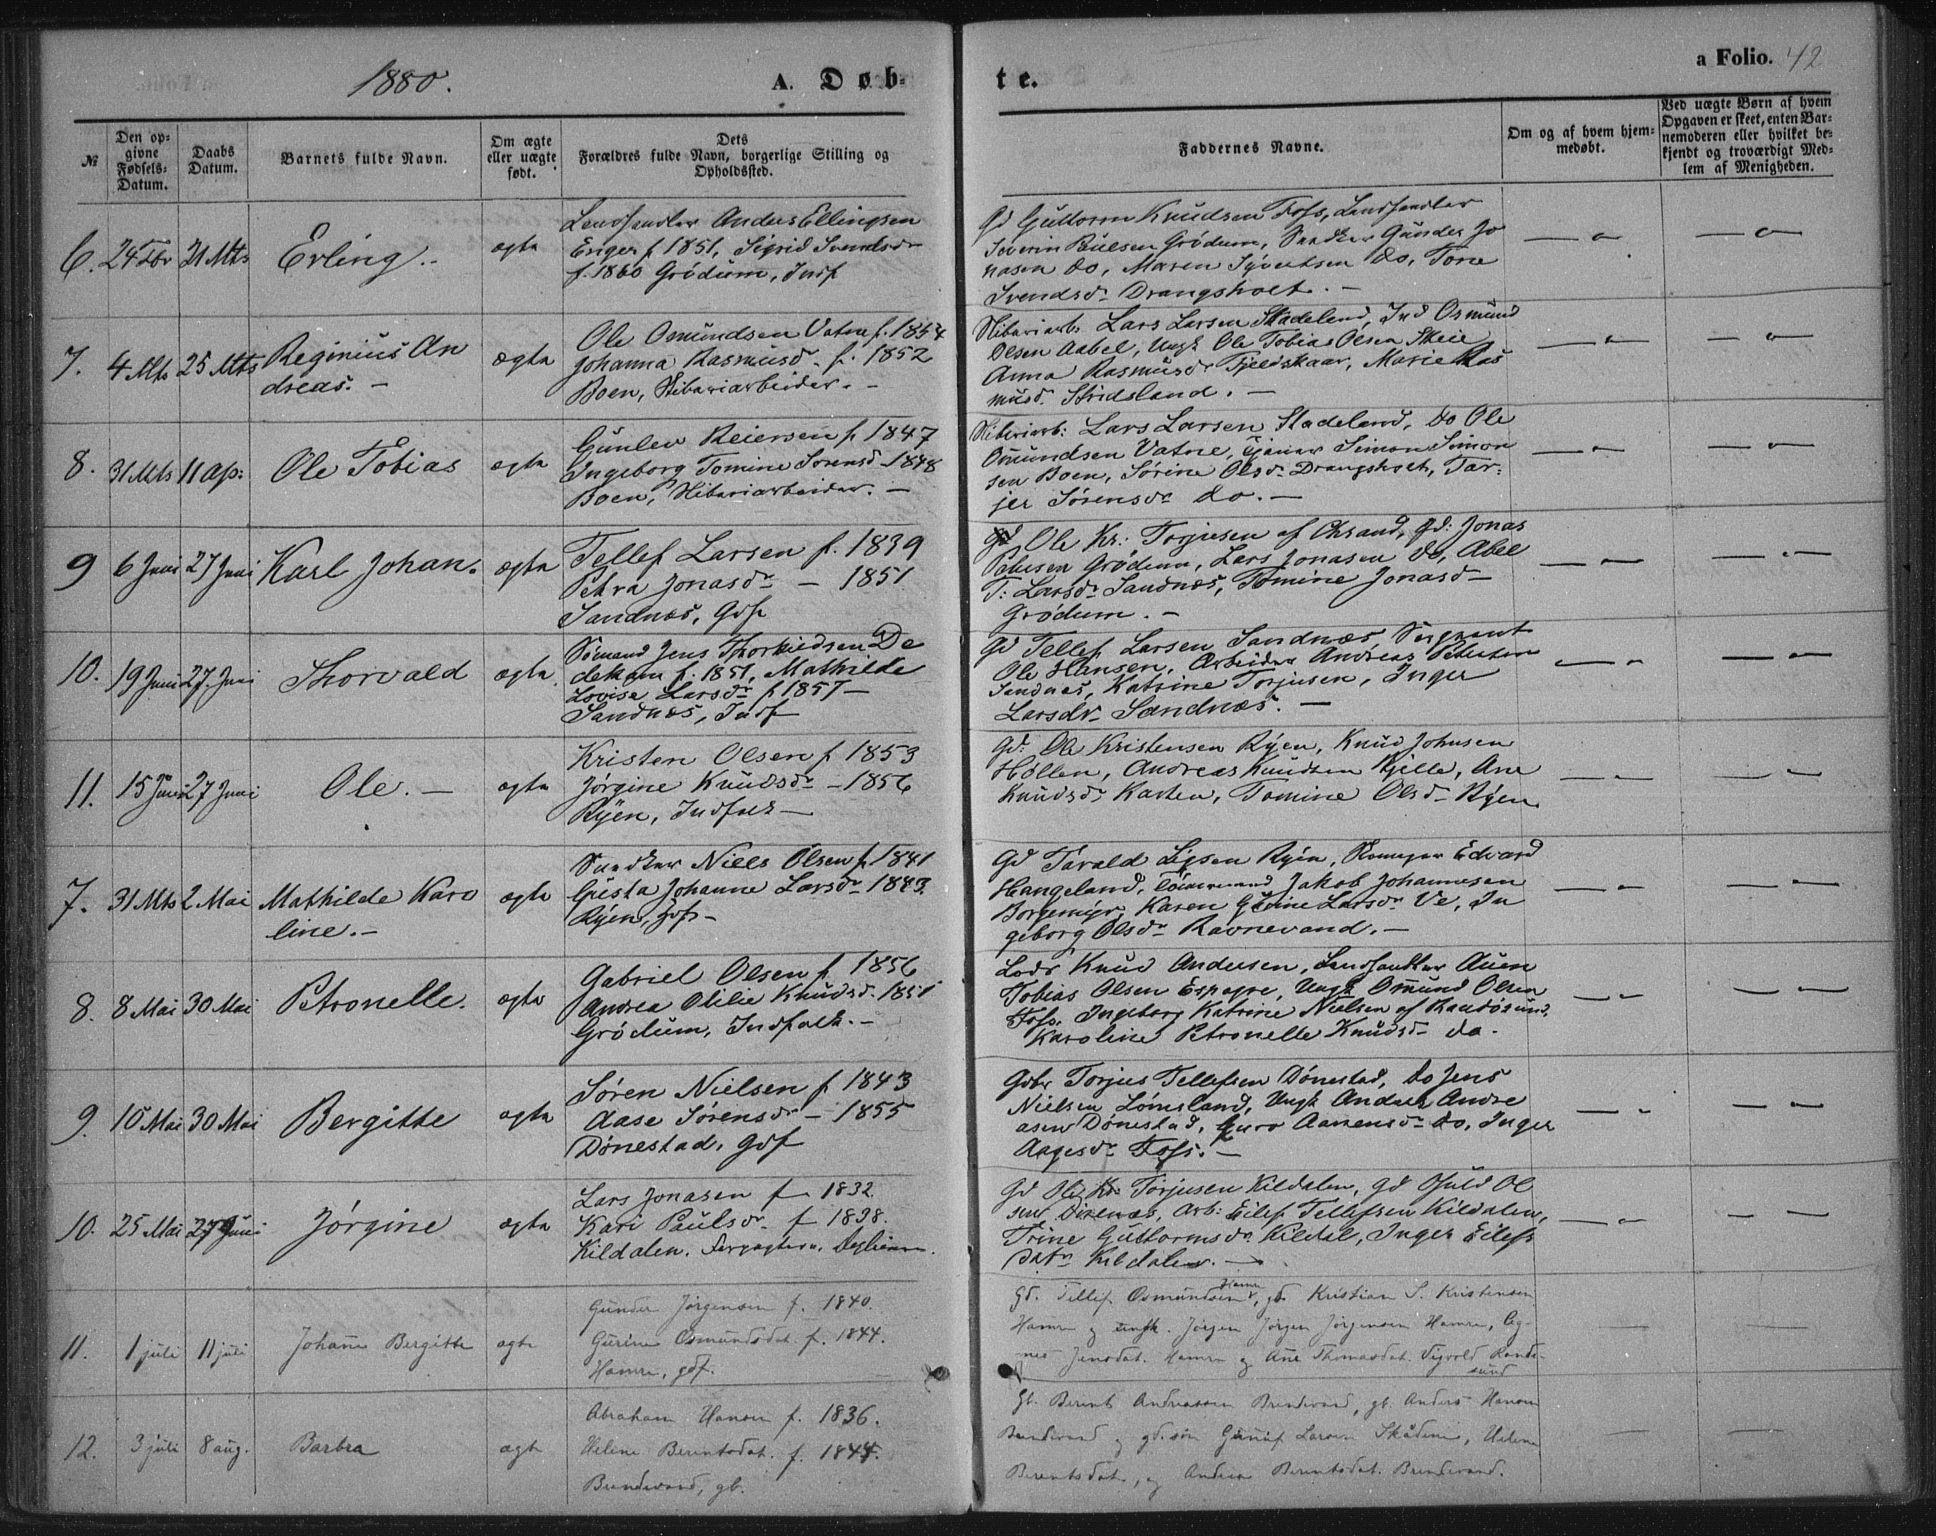 1880.
A. Døb-
te.
a Folio. 42
№
Den opgivne Fødsels-Datum.
Daabs Datum.
Barnets fulde Navn.
Om ægte eller uægte født.
Dets Forældres fulde Navn, borgerlige Stilling og Opholdssted.
Faddernes Navne.
Om og af hvem hjemmedøbt.
Ved uægte Børn af hvem Opgaven er skeet, enten Barnemoderen eller hvilket bekjendt og troværdigt Medlem af Menigheden.
6. 24 Febr 21 Mts Erling. ægte
Anders Ellingsen
f 1851, Sigrid
f. 1860 Grödum, Indf
Gd Guttorm Knudsen Foss,
Severin Grödum, Gunder Jo
nasen do, Maren Syvertsen do, Tone
Svendsdr Drangsholt. -
7. 4 Mts 25 Mts Reginius An
dreas. - ægte
Ole Omundsen Vatne f. 1854
Johanna Rasmusd. f. 1852
Boen, Sliberiarbeider. -
Sliberiarb. Lars Larsen Stadeland, Ind Osmund
Olsen Aabel, Ungk Ole Tobias Olsen Skeie
Anna Rasmusdr Fjeldskaar, Marie Ras
musd. Stridsland. -
8. 31 Mts 11 Ap: Ole Tobias ægte
Gunlev Reiersen f. 1847
Ingeborg Tomine Sørensd. 1848
Boen, Sliberiarbeider. -
Sliberiarb: Lars Larsen Stadeland, do Ole
Omundsen Vatne, Tjener Simon Simon
sen Boen, Sörine Olsdr Drangsholt, Tar-
jer Sörensdr do. -
9 6 Juni 27 Juni Karl Johan. ægte
Tellef Larsen f. 1839
Petra Jonasdr - 1851
Sandnæs, Gdf
Gd Ole Kr: Torjusen af Chrsand, Gd: Jonas
Petersen Grödum, Lars Jonasen do, Abel
T: Larsdr Sandnæs, Tomine Jonasd-
Grødum. -
10. 19 Juni 27 Juni Thorvald ægte
Sömand Jens Thorkildsen De
dekam f. 1851, Mathilde
Lovise Larsdr f 1857-
Sandnæs, Indf
Gd Tellef Larsen Sandnæs, Sergeant
Ole Hansen, Arbeider Andreas Petersen
Sandnæs, Katrine Torjusen, Inger
Larsdr Sandnæs. -
11. 15 Juni 27 Juni Ole. - ægte
Kristen Olsen f 1853
Jørgine Knudsdr - 1856
Ryen, Indfolk -
Gd: Ole Kristensen Ryen, Knud Johnsen
Höllen, Andreas Knudsen Kjelle, Ane
Knudsdr Karten, Tomine Olsd- Ryen
7. 31 Mts 2 Mai Mathilde Karo
line. - ægte
Niels Olsen f. 1841
Johanne Larsdr 1843
Ryen, Gdf -
Gd Tarald Ryen, Edvard
Hangeland, Tømmermand Jakob Johannesen
Borgemyr, Karen Larsdr Ve, In
geborg Olsdr Ravnevand. -
8. 8 Mai 30 Mai Petronelle. ægte
Gabriel Olsen f 1856
Andrea Otilie Knudsd. 1851
Grödum, Indfolk. -
Lods Knud Andersen,
Tobias Olsen Ungk Omund Olsen
Foss, Ingeborg Katrine Nielsen af Randøsund,
Karoline Petronelle Knudsd- do.
9. 10 Mai 30 Mai Bergitte ægte
Søren Nielsen f 1843
Aase Sørensdr - 1855
Dönestad, Gdf
Gdbr Torjus Tellefsen Dönestad, do Jens
Nielsen Lömsland, Ungk Anders Andre
asen Dönestad, Guro Aanensdr do, Inger
Aagesdr Foss. -
10. 25 Mai 27 Juni Jørgine ægte
Lars Jonasen f 1832
Kari Paulsdr f 1838.
Kildalen.
Gd Ole Kr Torjusen Kildalen, Gd Ol
sen Dönnæs, Arb: Eilef Tellefsen Kildalen,
Trine Guttormsdr Kildal, Inger Eilefs
datr Kildalen. -
11. 1 juli 11 juli Johane Bergitte ægte
Gunder Jørgensen f. 1840.
Gurine Osmundsdat. f. 1844.
Hamre, gdf.
Gd. Tellef Osmundsen Hamre, gb. Kristian S. Kristensen
Hamre og ungk. Jørgen Jørgen Jørgensen Hamre, Ag-
nes Jensdat. Hamre og Ane Thomasdat. Randø-
sund
12. 3 juli 8 aug. Barbra ægte
Abraham Hansen f. 1836.
Helene Berentsdat. f. 1844.
Brendevand, gb.
Gb. Berent Andreassen Brendevand, gb. Anders Hansen
Brendevand og gd.søn Gunuf Larsen Helene
Berentsdat, og Andrea Berentsdat. Brendevand.